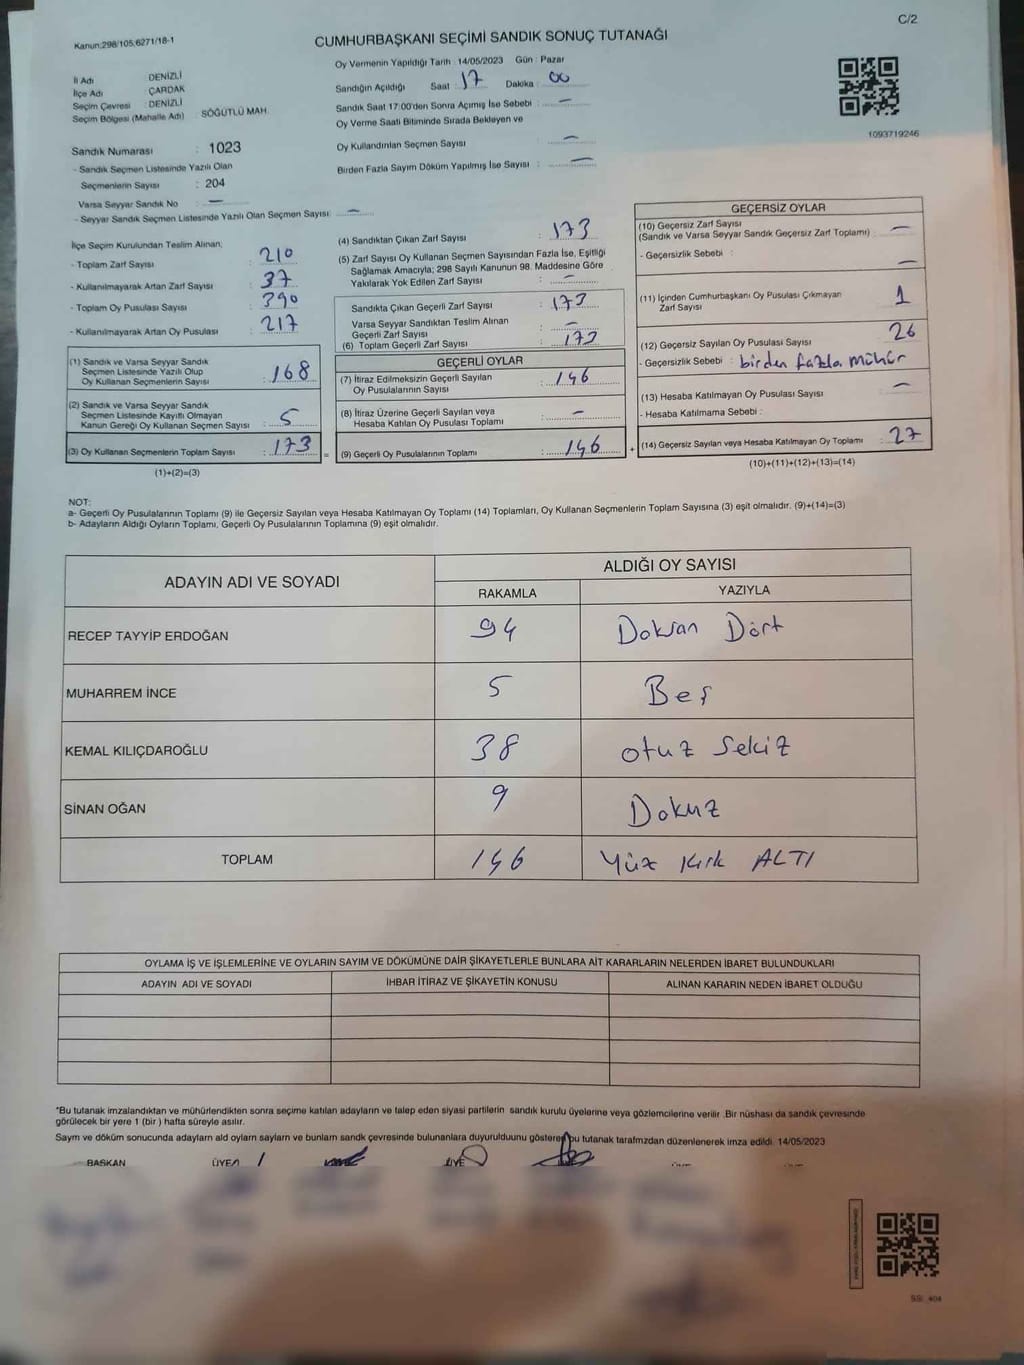 C/2
Kanun:298/105,6271/18-1
CUMHURBAŞKANI SEÇİMİ SANDIK SONUÇ TUTANAĞI
İl Adı DENİZLİ
İlçe Adı ÇARDAK
Seçim Çevresi DENİZLİ
Seçim Bölgesi (Mahalle Adı) : SÖĞÜTLÜ MAH.
Sandık Numarası : 1023
- Sandık Seçmen Listesinde Yazılı Olan
Seçmenlerin Sayısı : 204
Varsa Seyyar Sandık No : —
- Seyyar Sandık Seçmen Listesinde Yazılı Olan Seçmen Sayısı: —
Oy Vermenin Yapıldığı Tarih : 14/05/2023 Gün : Pazar
Sandığın Açıldığı Saat : 17 Dakika : 00
Sandık Saat 17:00'den Sonra Açımış İse Sebebi : —
Oy Verme Saati Bitiminde Sırada Bekleyen ve
Oy Kullandırılan Seçmen Sayısı : —
Birden Fazla Sayım Döküm Yapılmış İse Sayısı : —
1093719246
İlçe Seçim Kurulundan Teslim Alınan;
- Toplam Zarf Sayısı : 210
- Kullanılmayarak Artan Zarf Sayısı : 37
- Toplam Oy Pusulası Sayısı : 390
- Kullanılmayarak Artan Oy Pusulası : 217
(1) Sandık ve Varsa Seyyar Sandık
Seçmen Listesinde Yazılı Olup
Oy Kullanan Seçmenlerin Sayısı : 168
(2) Sandık ve Varsa Seyyar Sandık
Seçmen Listesinde Kayıtlı Olmayan
Kanun Gereği Oy Kullanan Seçmen Sayısı : 5
(3) Oy Kullanan Seçmenlerin Toplam Sayısı : 173
(1)+(2)=(3)
(4) Sandıktan Çıkan Zarf Sayısı : 173
(5) Zarf Sayısı Oy Kullanan Seçmen Sayısından Fazla İse, Eşitliği
Sağlamak Amacıyla; 298 Sayılı Kanunun 98. Maddesine Göre
Yakılarak Yok Edilen Zarf Sayısı : —
Sandıkta Çıkan Geçerli Zarf Sayısı : 173
Varsa Seyyar Sandıktan Teslim Alınan
Geçerli Zarf Sayısı : —
(6) Toplam Geçerli Zarf Sayısı : 173
GEÇERLİ OYLAR
(7) İtiraz Edilmeksizin Geçerli Sayılan
Oy Pusulalarının Sayısı : 146
(8) İtiraz Üzerine Geçerli Sayılan veya
Hesaba Katılan Oy Pusulası Toplamı : —
= (9) Geçerli Oy Pusulalarının Toplamı : 146 +
GEÇERSİZ OYLAR
(10) Geçersiz Zarf Sayısı
(Sandık ve Varsa Seyyar Sandık Geçersiz Zarf Toplamı) : —
- Geçersizlik Sebebi : —
(11) İçinden Cumhurbaşkanı Oy Pusulası Çıkmayan
Zarf Sayısı 1
(12) Geçersiz Sayılan Oy Pusulası Sayısı : 26
- Geçersizlik Sebebi : birden fazla mühür
(13) Hesaba Katılmayan Oy Pusulası Sayısı : —
- Hesaba Katılmama Sebebi :
(14) Geçersiz Sayılan veya Hesaba Katılmayan Oy Toplamı : 27
(10)+(11)+(12)+(13)=(14)
NOT:
a- Geçerli Oy Pusulalarının Toplamı (9) ile Geçersiz Sayılan veya Hesaba Katılmayan Oy Toplamı (14) Toplamları, Oy Kullanan Seçmenlerin Toplam Sayısına (3) eşit olmalıdır. (9)+(14)=(3)
b- Adayların Aldığı Oyların Toplamı, Geçerli Oy Pusulalarının Toplamına (9) eşit olmalıdır.
ADAYIN ADI VE SOYADI ALDIĞI OY SAYISI
RAKAMLA YAZIYLA
RECEP TAYYİP ERDOĞAN 94 Doksan Dört
MUHARREM İNCE 5 Beş
KEMAL KILIÇDAROĞLU 38 otuz sekiz
SİNAN OĞAN 9 Dokuz
TOPLAM 146 Yüz Kırk ALTI
OYLAMA İŞ VE İŞLEMLERİNE VE OYLARIN SAYIM VE DÖKÜMÜNE DAİR ŞİKAYETLERLE BUNLARA AİT KARARLARIN NELERDEN İBARET BULUNDUKLARI
ADAYIN ADI VE SOYADI İHBAR İTİRAZ VE ŞİKAYETİN KONUSU ALINAN KARARIN NEDEN İBARET OLDUĞU
*Bu tutanak imzalandıktan ve mühürlendikten sonra seçime katılan adayların ve talep eden siyasi partilerin sandık kurulu üyelerine veya gözlemcilerine verilir .Bir nüshası da sandık çevresinde
görülecek bir yere 1 (bir ) hafta süreyle asılır.
Saym ve döküm sonucunda adaylarn ald oylarn saylarn ve bunlarn sandk çevresinde bulunanlara duyurulduunu gösteren bu tutanak tarafmzdan düzenlenerek imza edildi. 14/05/2023
BAŞKAN ÜYE ÜYE